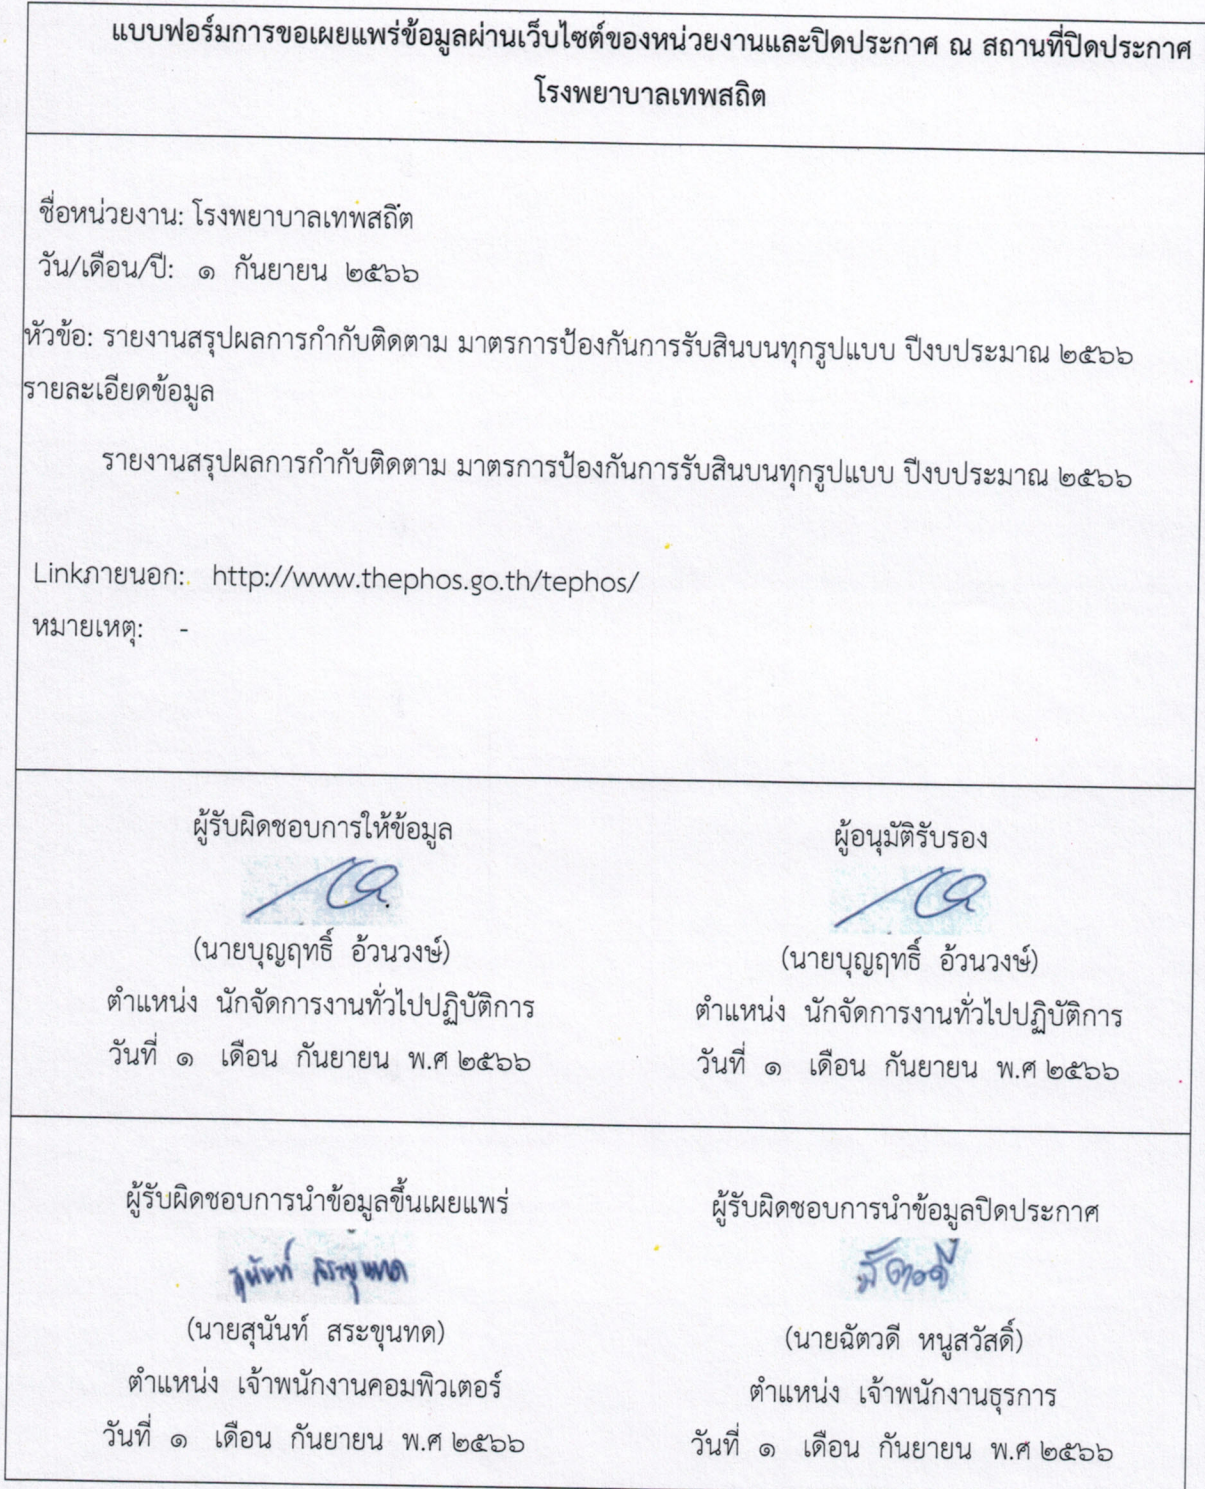 แบบฟอร์มการขอเผยแพร่ข้อมูลผ่านเว็บไซต์ของหน่วยงานและปิดประกาศ ณ สถานที่ปิดประกาศ
โรงพยาบาลเทพสถิต
ชื่อหน่วยงาน: โรงพยาบาลเทพสถิต
วัน/เดือน/ปี: ๑ กันยายน ๒๕๖๖
หัวข้อ: รายงานสรุปผลการกำกับติดตาม มาตรการป้องกันการรับสินบนทุกรูปแบบ ปีงบประมาณ ๒๕๖๖
รายละเอียดข้อมูล
รายงานสรุปผลการกำกับติดตาม มาตรการป้องกันการรับสินบนทุกรูปแบบ ปีงบประมาณ ๒๕๖๖
Linkภายนอก: http://www.thephos.go.th/tephos/
หมายเหตุ: -
ผู้รับผิดชอบการให้ข้อมูล
(นายบุญฤทธิ์ อ้วนวงษ์)
ตำแหน่ง นักจัดการงานทั่วไปปฏิบัติการ
วันที่ ๑ เดือน กันยายน พ.ศ ๒๕๖๖
ผู้อนุมัติรับรอง
(นายบุญฤทธิ์ อ้วนวงษ์)
ตำแหน่ง นักจัดการงานทั่วไปปฏิบัติการ
วันที่ ๑ เดือน กันยายน พ.ศ ๒๕๖๖
ผู้รับผิดชอบการนำข้อมูลขึ้นเผยแพร่
สุนันท์ สระขุนทด
(นายสุนันท์ สระขุนทด)
ตำแหน่ง เจ้าพนักงานคอมพิวเตอร์
วันที่ ๑ เดือน กันยายน พ.ศ ๒๕๖๖
ผู้รับผิดชอบการนำข้อมูลปิดประกาศ
(นายฉัตวดี หนูสวัสดิ์)
ตำแหน่ง เจ้าพนักงานธุรการ
วันที่ ๑ เดือน กันยายน พ.ศ ๒๕๖๖